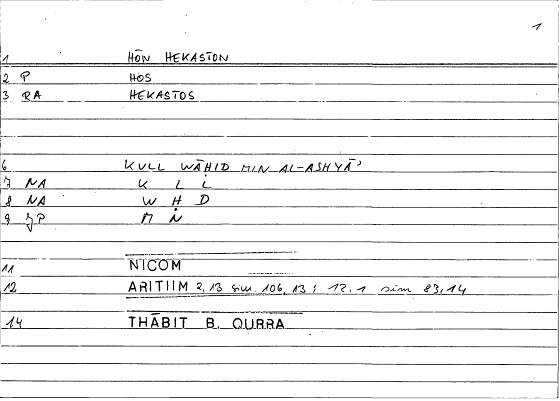 1
1 HŌN HEKASTON
2 P HOS
3 RA HEKASTOS
6 KULL WĀḤID MIN AL-ASHYĀʾ
7 NA K L L
8 NA W Ḥ D
9 JP M N
11 NICOM
12 ARITIIM 2,13 sim. 106,13; 12,1 sim 83,14
14 THĀBIT B. QURRA